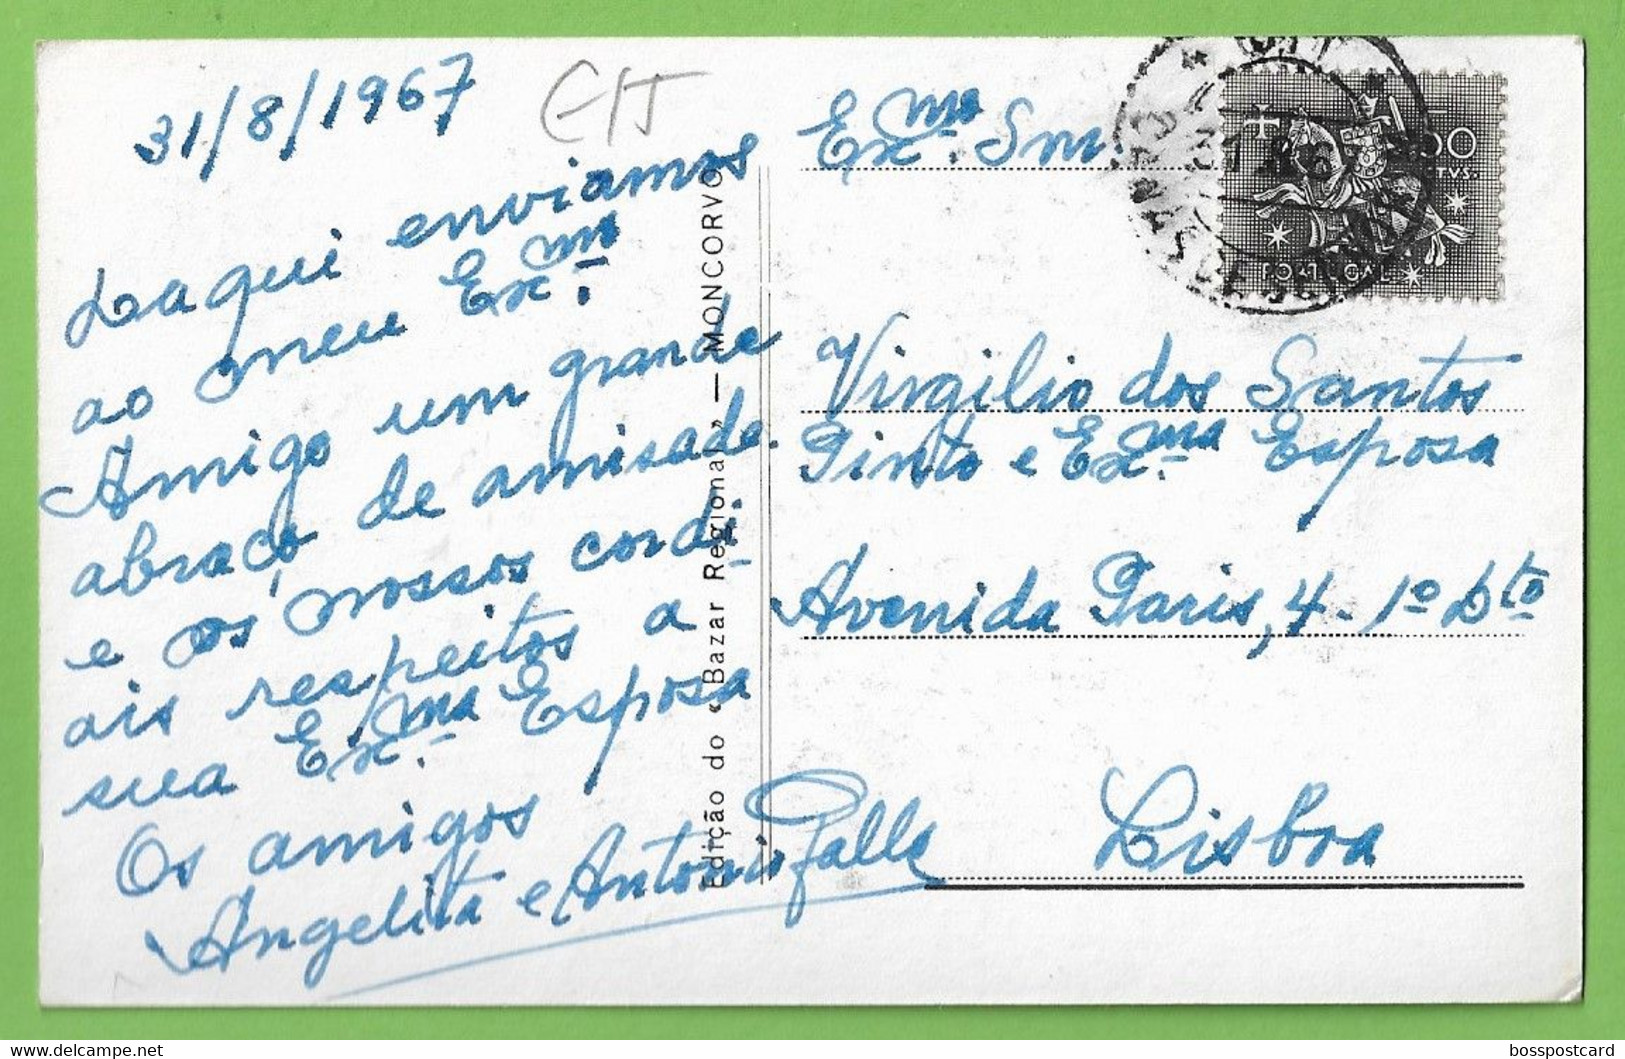 31/8/1967
E/T
Daqui enviamos
ao meu Exmº.
Amigo um grande
abraço de amisade
e os nossos cordi-
ais respeitos a
sua Exma. Esposa
Os amigos
Angelita e António Falla
Edição do «Bazar Regional» — MONCORVO
Exmº. Snr.
Virgilio dos Santos
Pinto e Exma. Esposa
Avenida Paris, 4-1º Dto
Lisboa
PORTUGAL
bosspostcard